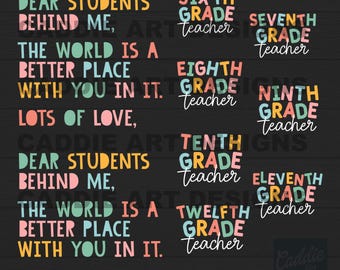 DEAR STUDENTS
BEHIND ME,
THE WORLD IS A
BETTER PLACE
WITH YOU IN IT.
LOTS OF LOVE,
DEAR STUDENTS
BEHIND ME,
THE WORLD IS A
BETTER PLACE
WITH YOU IN IT.
SIXTH
GRADE
teacher
SEVENTH
GRADE
teacher
EIGHTH
GRADE
teacher
NINTH
GRADE
teacher
TENTH
GRADE
teacher
ELEVENTH
GRADE
teacher
TWELFTH
GRADE
teacher
CADDIE ART DESIGNS
Caddie